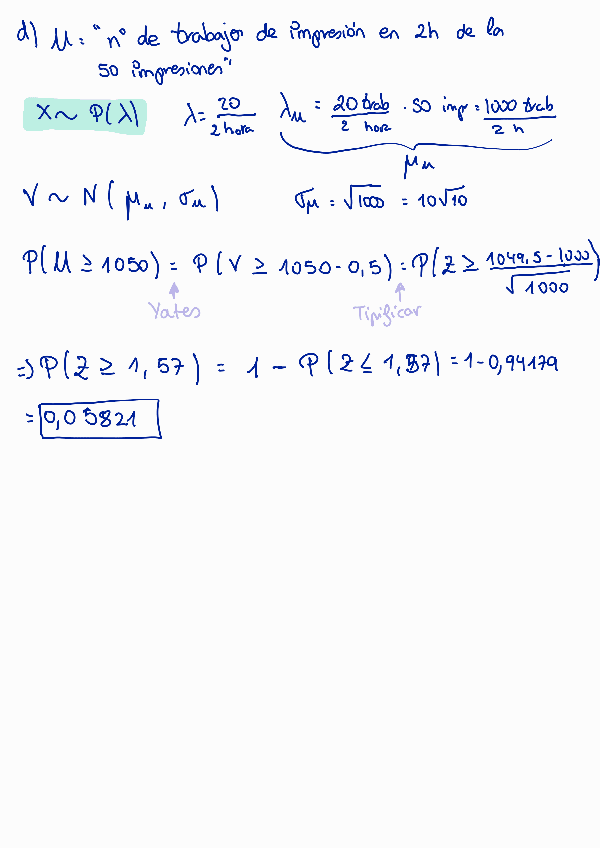 d) U = "nº de trabajos de impresión en 2h de las
50 impresiones"
X ~ P(λ) λ = 20/2 hora λu = 20 trab/2 hora · 50 impr = 1000 trab/2 h
μu
V ~ N(μu, σu) σμ = √1000 = 10√10
P(U ≥ 1050) = P(V ≥ 1050 - 0,5) = P(Z ≥ (1049,5 - 1000)/√1000)
Yates Tipificar
=> P(Z ≥ 1,57) = 1 - P(Z ≤ 1,57) = 1 - 0,94179
= 0,05821